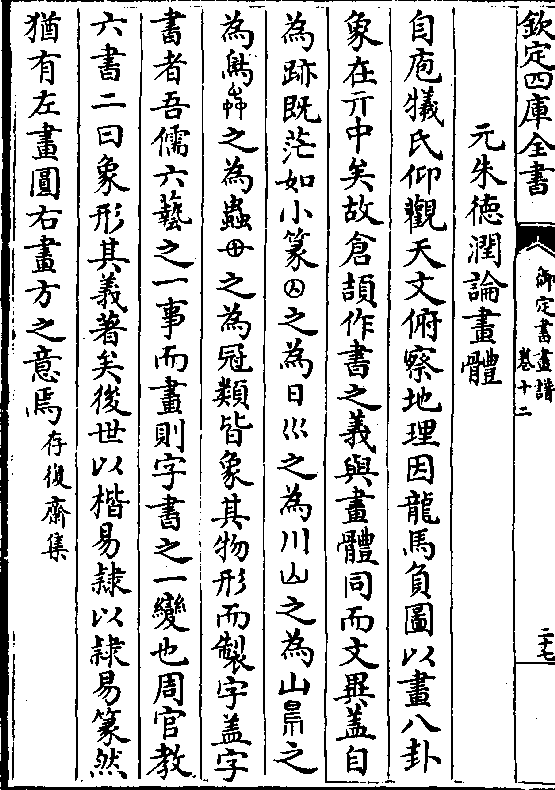 欽定四庫全書
御定書畫譜
卷十二
二七
元朱德潤論畫體
自庖犧氏仰觀天文俯察地理因龍馬負圖以畫八卦
象在亓中矣故倉頡作書之義與畫體同而文異盖自
為跡既茫如小篆之為日巛之為川山之為山之
為之為蟲之為冠類皆象其物形而製字盖字
書者吾儒六藝之一事而畫則字書之一變也周官教
六書二曰象形其義著矣後世以楷易隸以隸易篆然
猶有左畫圓右畫方之意焉存復齋集